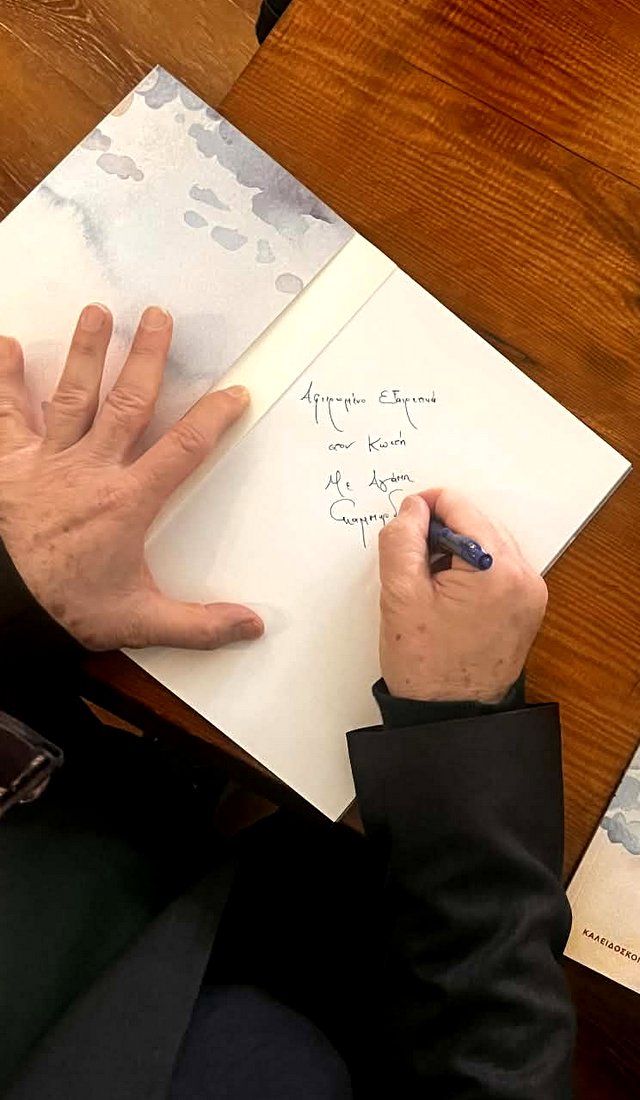 Αφιερωμένο Εξαιρετικά
στον Κωστή
Με Αγάπη
ΚΑΛΕΙΔΟΣΚΟΠ